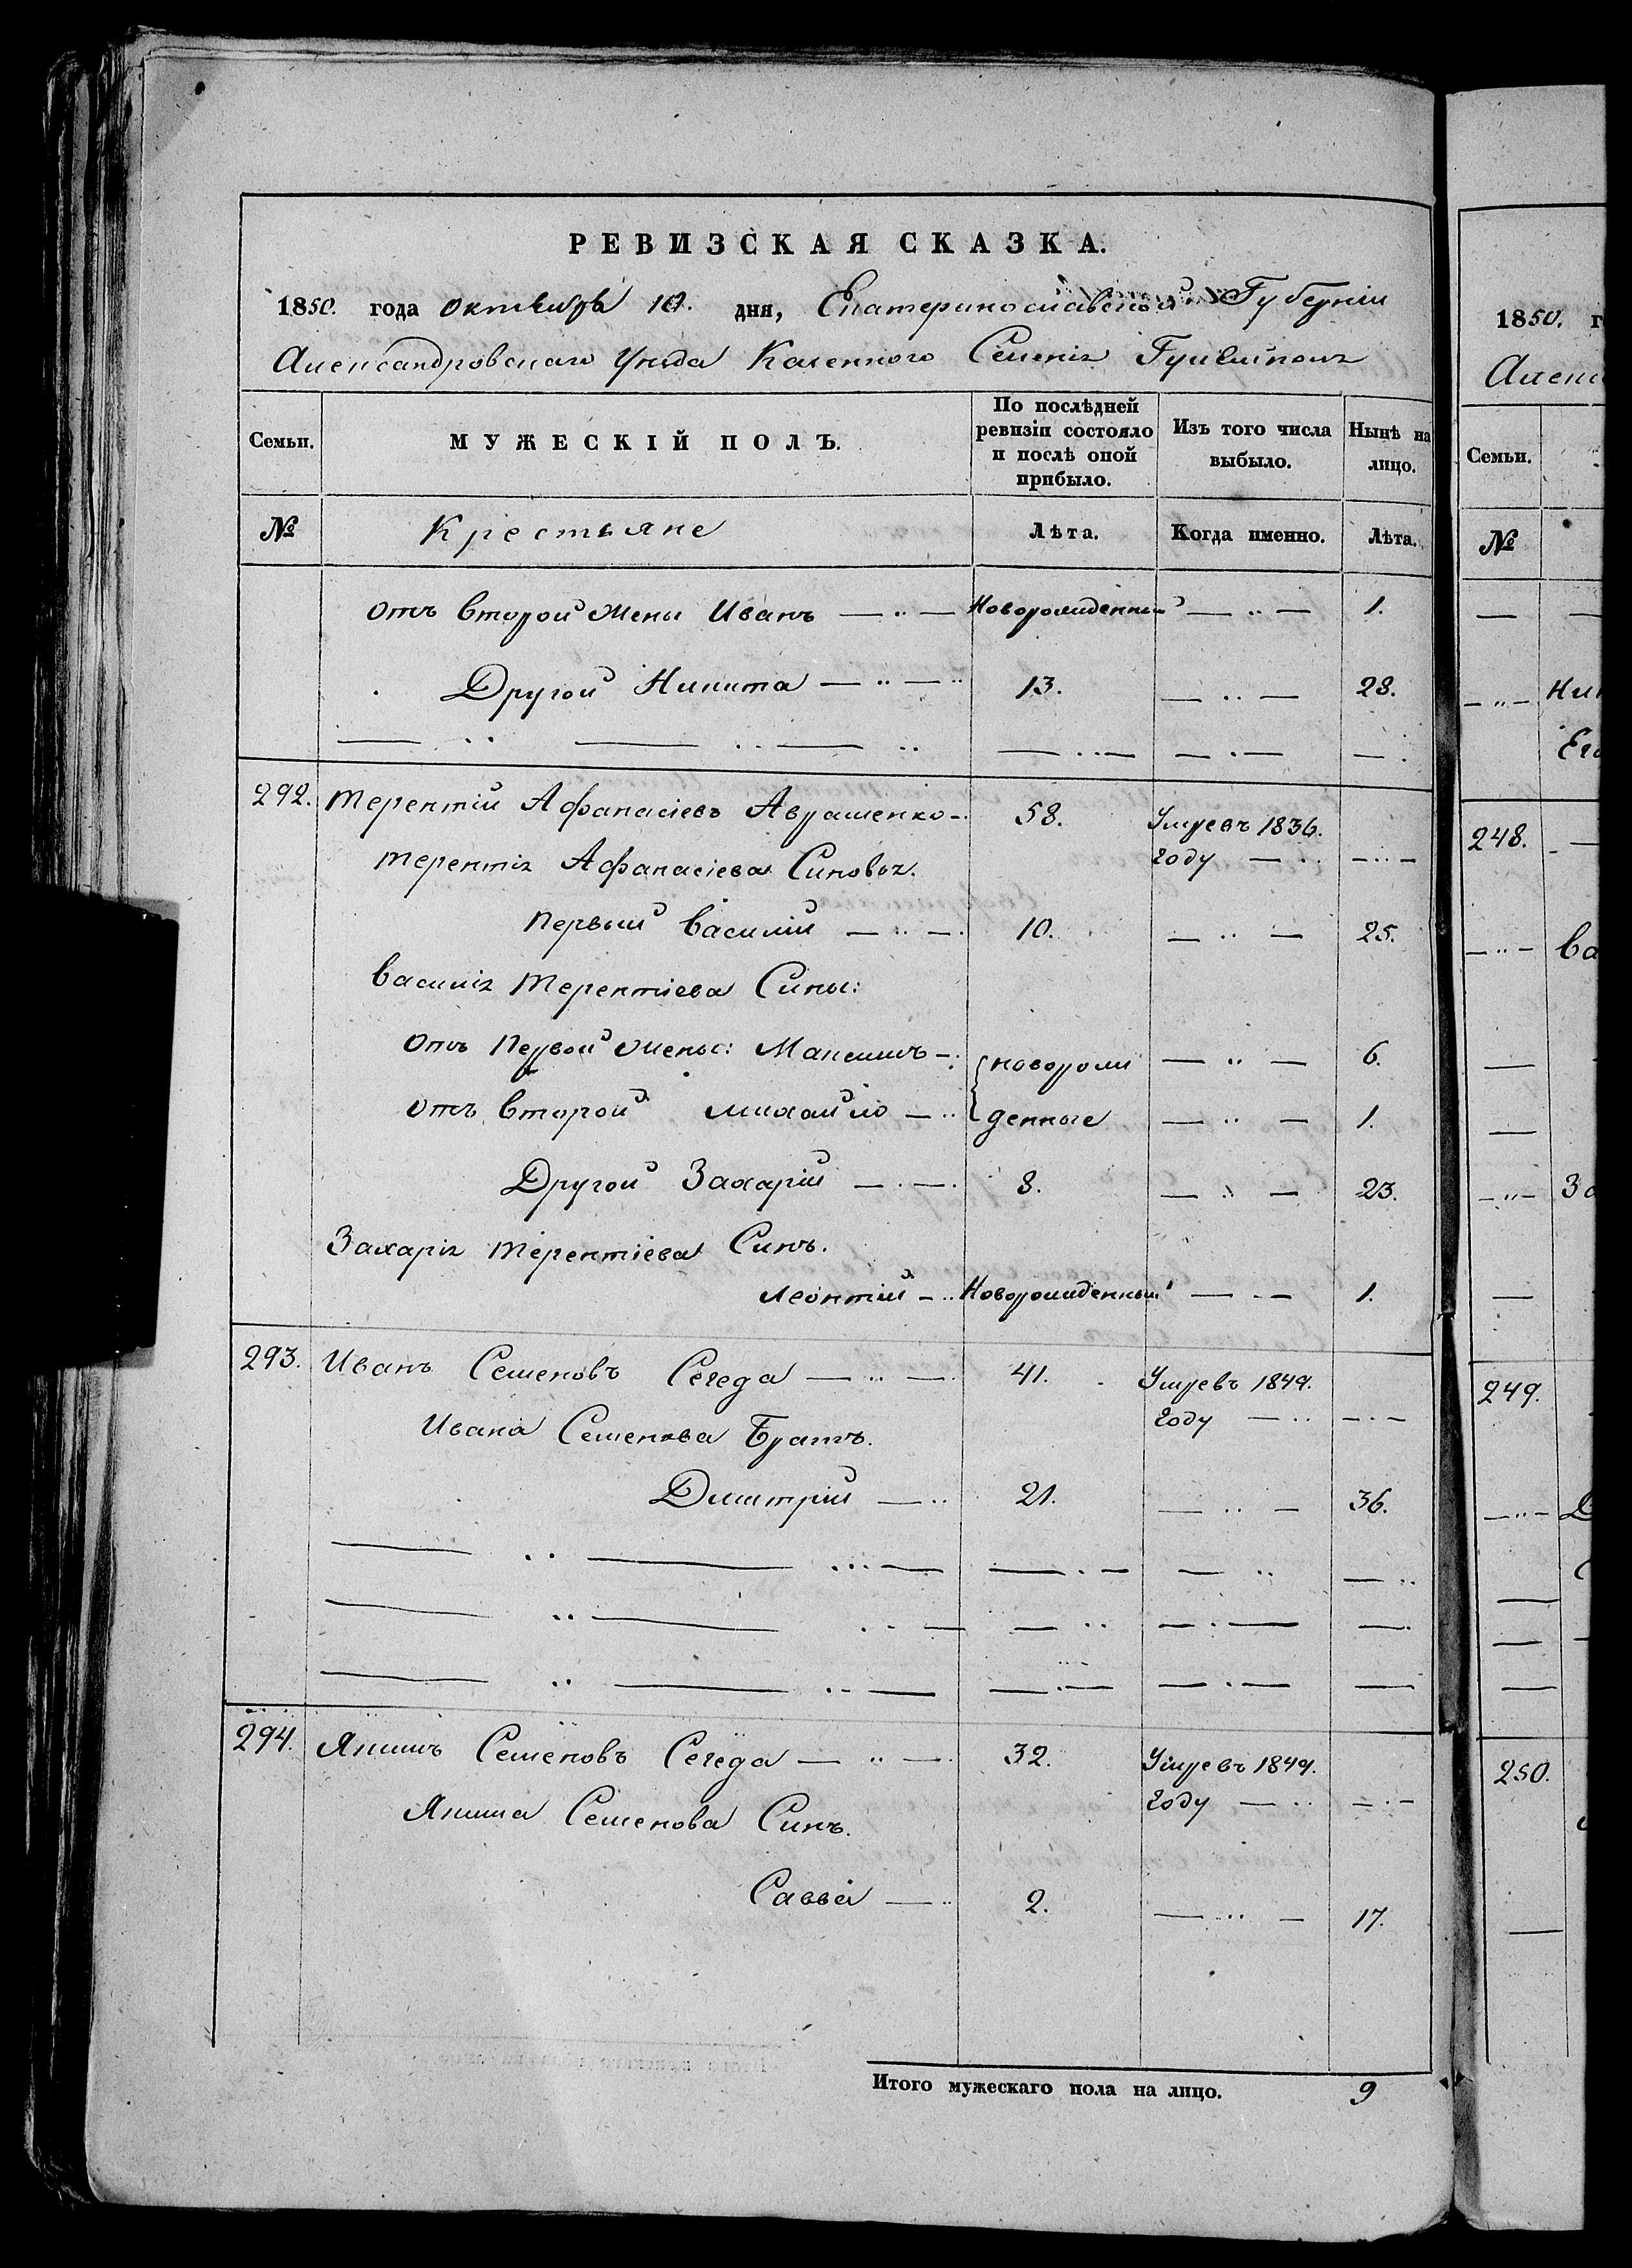 РЕВИЗСКАЯ СКАЗКА.
1850. года октября 10. дня, Екатеринославской Губерніи
Александровскаго Уѣзда Казенного Селенія Гуляйполя
Семьи.
МУЖЕСКІЙ ПОЛЪ.
По послѣдней ревизіи состояло и послѣ оной прибыло.
Изъ того числа выбыло.
Нынѣ на лицо.
№ Крестьяне Лѣта. Когда именно. Лѣта.
отъ второй жены Иванъ — " — Новорожденный — " — 1.
Другой Никита — " — 13. — " — 28.
292. Терентій Афанасіевъ Аврашенко 58. Умре въ 1836.
Терентія Афанасіева Сыновья. году
Первый Василій — " — 10. — " — 25.
Василія Терентіева Сыны:
отъ Первой жены: Максимъ — новорож — " — 6.
отъ второй Михайло — денные — " — 1.
Другой Захарій — " — 8. — " — 23.
Захарія Терентіева Сынъ.
Леонтій — Новорожденный — " — 1.
293. Иванъ Семеновъ Сегеда — " — 41. Умре въ 1849.
году
Ивана Семенова Братъ.
Димитрій — " 21. — " — 36.
294. Якимъ Семеновъ Сегеда — " — 32. Умре въ 1849.
году
Якима Семенова Сынъ.
Савва — " 2. — " — 17.
Итого мужескаго пола на лицо. 9
1850. г
Семьи.
№
248.
249.
250.